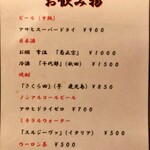 お飲み物
ビール(中瓶)
アサヒスーパードライ ¥900
日本酒
お燗 常温 「菊正宗」 ¥1000
冷酒 「千代郷」(秋田) ¥1500
焼酎
「さくら田」(芋 鹿児島) ¥850
ノンアルコールビール
アサヒドライゼロ ¥700
ミネラルウォーター
「スルジーヴァ」(イタリア) ¥500
ウーロン茶 ¥500